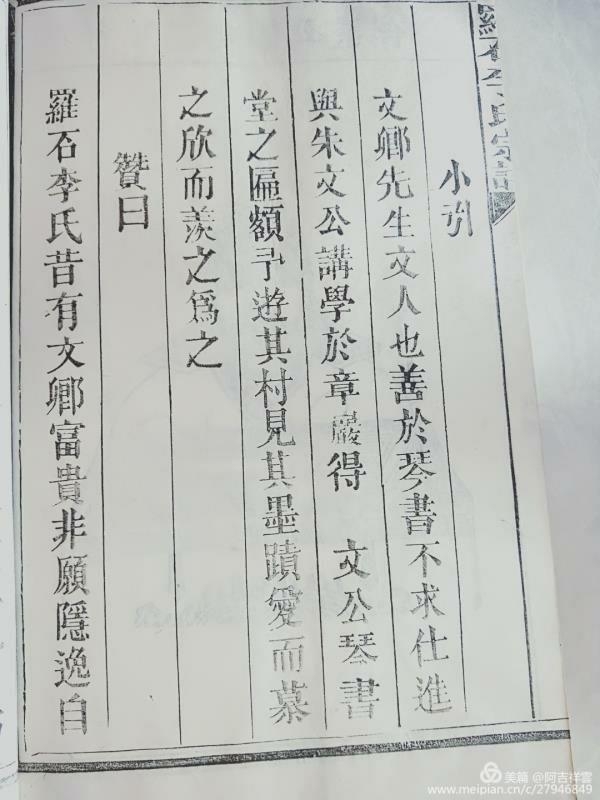 羅石李氏宗譜
小引
文卿先生文人也善於琴書不求仕進
與朱文公講學於章巖得 文公琴書
堂之匾額予遊其村見其墨蹟愛而慕
之欣而羨之爲之
贊曰
羅石李氏昔有文卿富貴非願隱逸自
美篇 @阿吉祥雲
www.meipian.cn/c/27946849